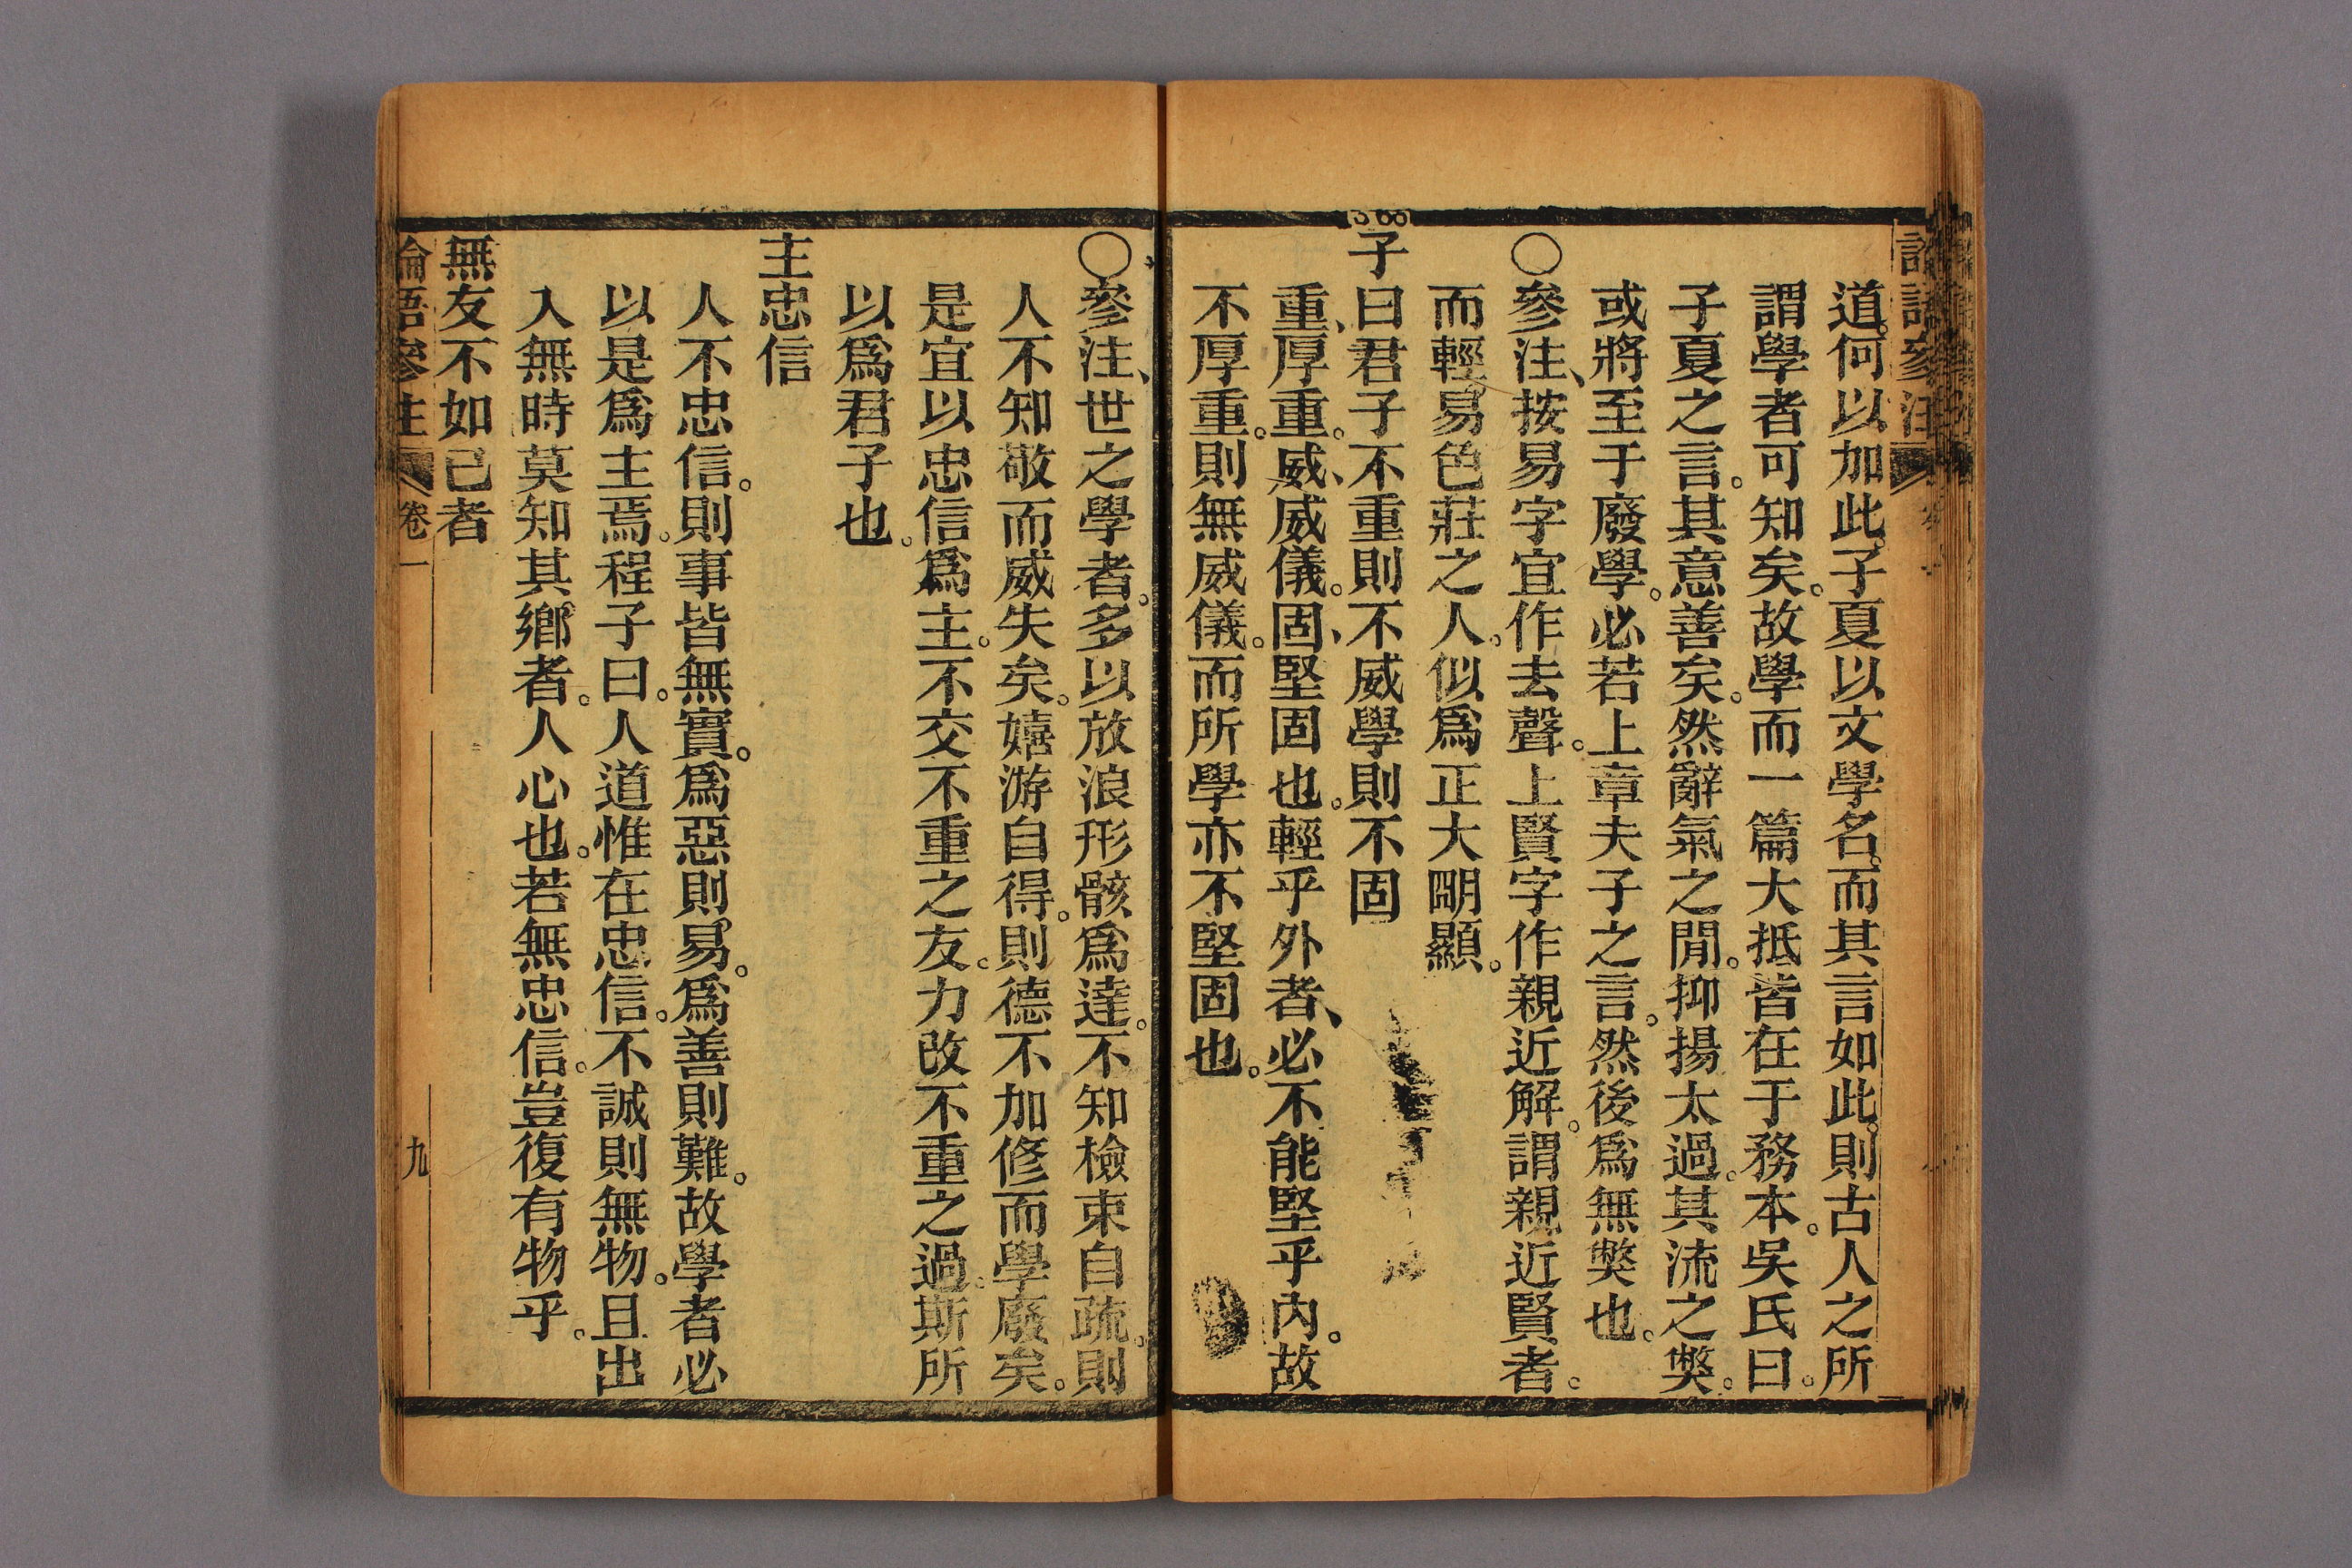 道。何以加此。子夏以文學名。而其言如此。則古人之所
謂學者可知矣。故學而一篇大抵皆在于務本。吳氏曰。
子夏之言。其意善矣。然辭氣之閒。抑揚太過。其流之獘。
或將至于廢學。必若上章夫子之言。然後爲無獘也。
〇參注、按易字宜作去聲。上賢字作親近解。謂親近賢者。
而輕易色莊之人。似爲正大朙顯。
子曰君子不重則不威學則不固
重、厚重。威、威儀。固、堅固也。輕乎外者、必不能堅乎內。故
不厚重。則無威儀。而所學亦不堅固也。
〇參注、世之學者。多以放浪形骸爲達。不知檢束自疏。則
人不知敬而威失矣。嬉游自得。則德不加修而學廢矣。
是宜以忠信爲主。不交不重之友。力改不重之過。斯所
以爲君子也。
主忠信
人不忠信。則事皆無實。爲惡則易。爲善則難。故學者必
以是爲主焉。程子曰。人道惟在忠信。不誠則無物。且出
入無時莫知其鄉者。人心也。若無忠信。豈復有物乎。
無友不如己者
論語參注 卷一 九